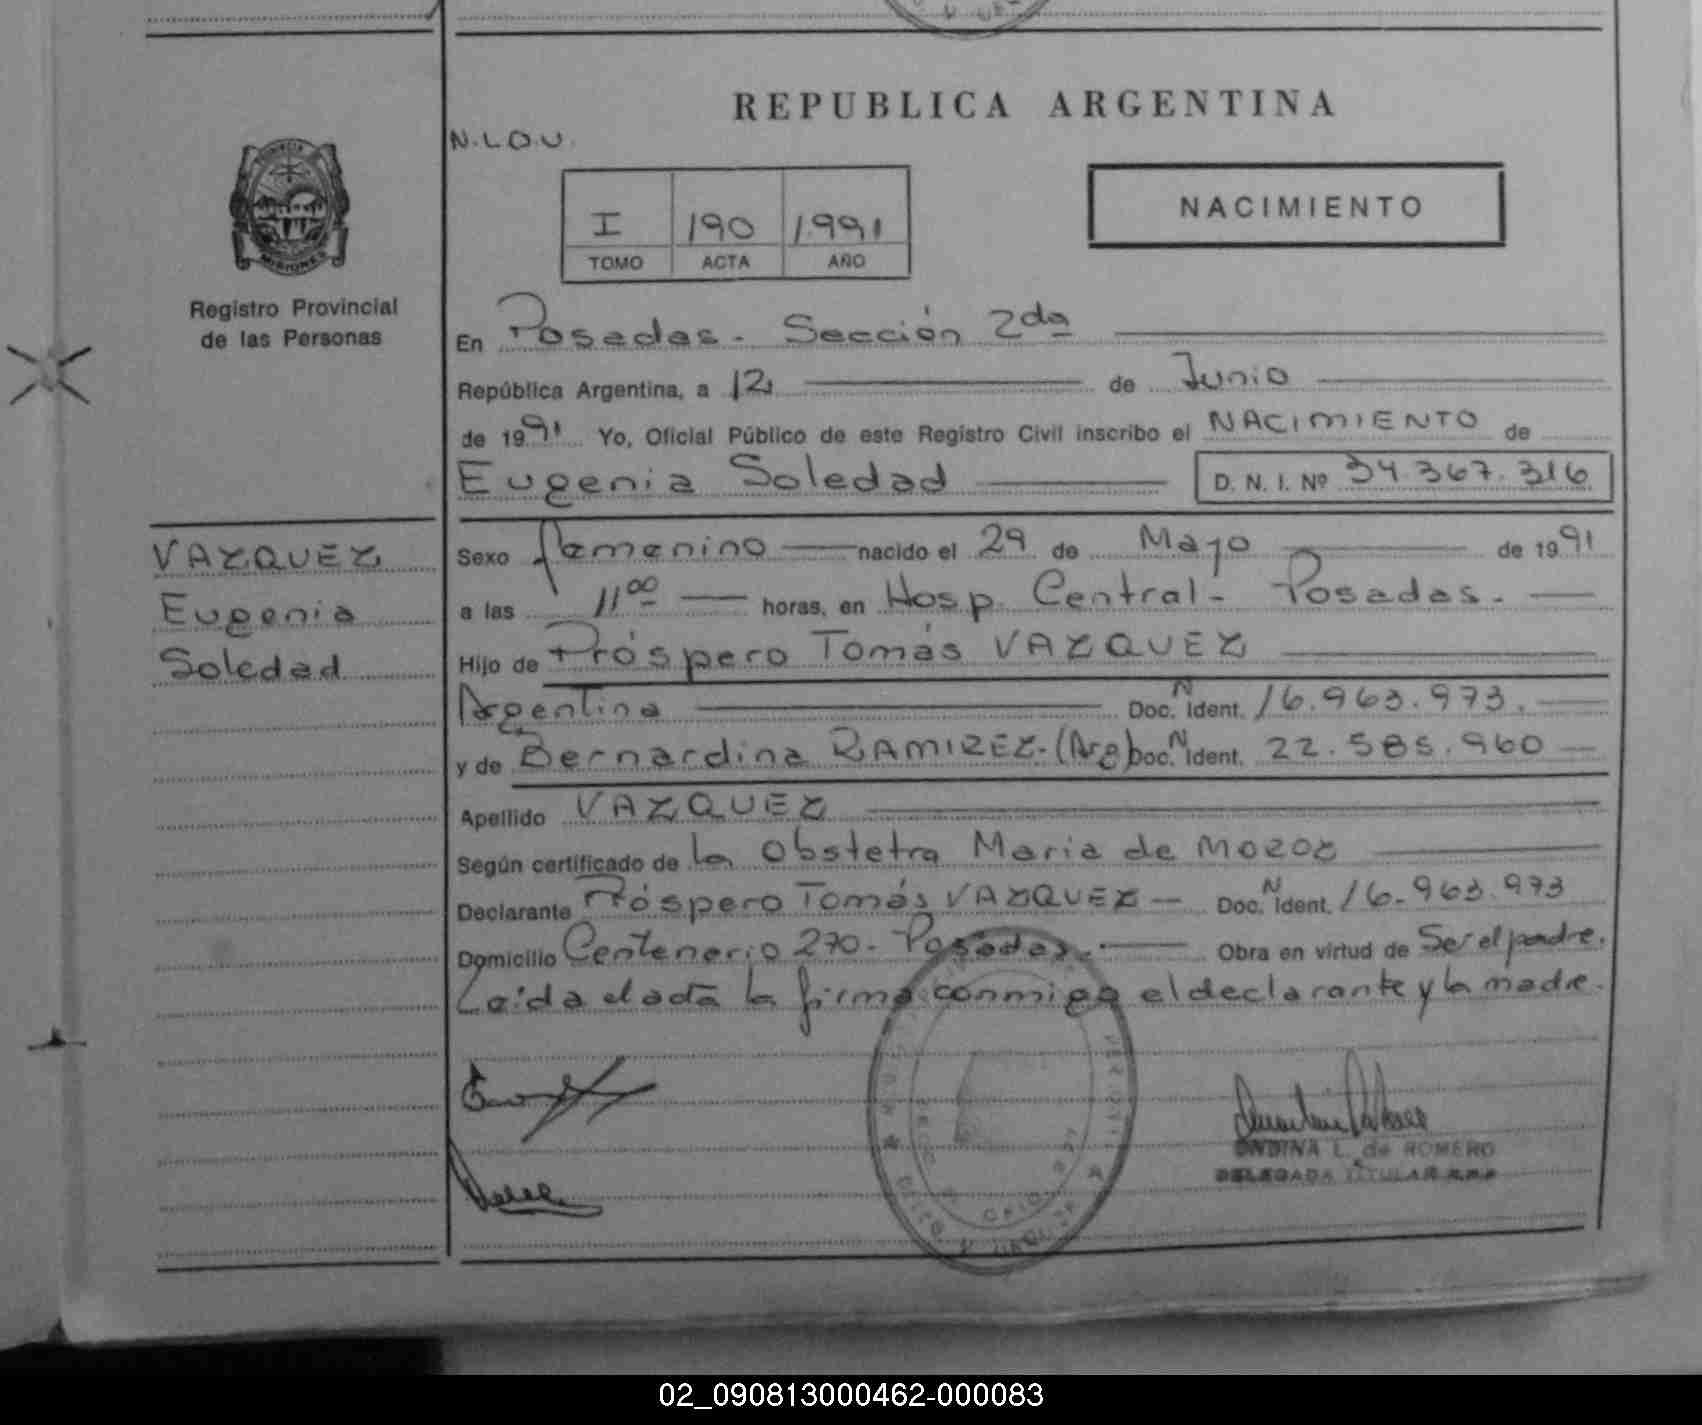 REPUBLICA ARGENTINA
N.L.O.U.
PROVINCIA
MISIONES
Registro Provincial
de las Personas
I 190 1.991
TOMO ACTA AÑO
NACIMIENTO
En Posadas - Sección 2da
República Argentina, a 12 de Junio
de 1991 Yo, Oficial Público de este Registro Civil inscribo el NACIMIENTO de
Eugenia Soledad D. N. I. Nº 34.367.316
VAZQUEZ
Eugenia
Soledad
Sexo femenino nacido el 29 de Mayo de 1991
a las 11 00 horas, en Hosp. Central - Posadas. -
Hijo de Próspero Tomás VAZQUEZ
Argentina Doc. N Ident. 16.963.973.
y de Bernardina RAMIREZ. (Arg) Doc. N Ident. 22.585.960
Apellido VAZQUEZ
Según certificado de la Obstetra Maria de MOZOZ
Declarante Próspero Tomás VAZQUEZ - Doc. N Ident. 16.963.973
Domicilio Centenario 270 - Posadas. - Obra en virtud de Ser el padre.
Leída el acta la firma conmigo el declarante y la madre.
ONDINA L. de ROMERO
DELEGADA TITULAR R.P.P.
02_090813000462-000083